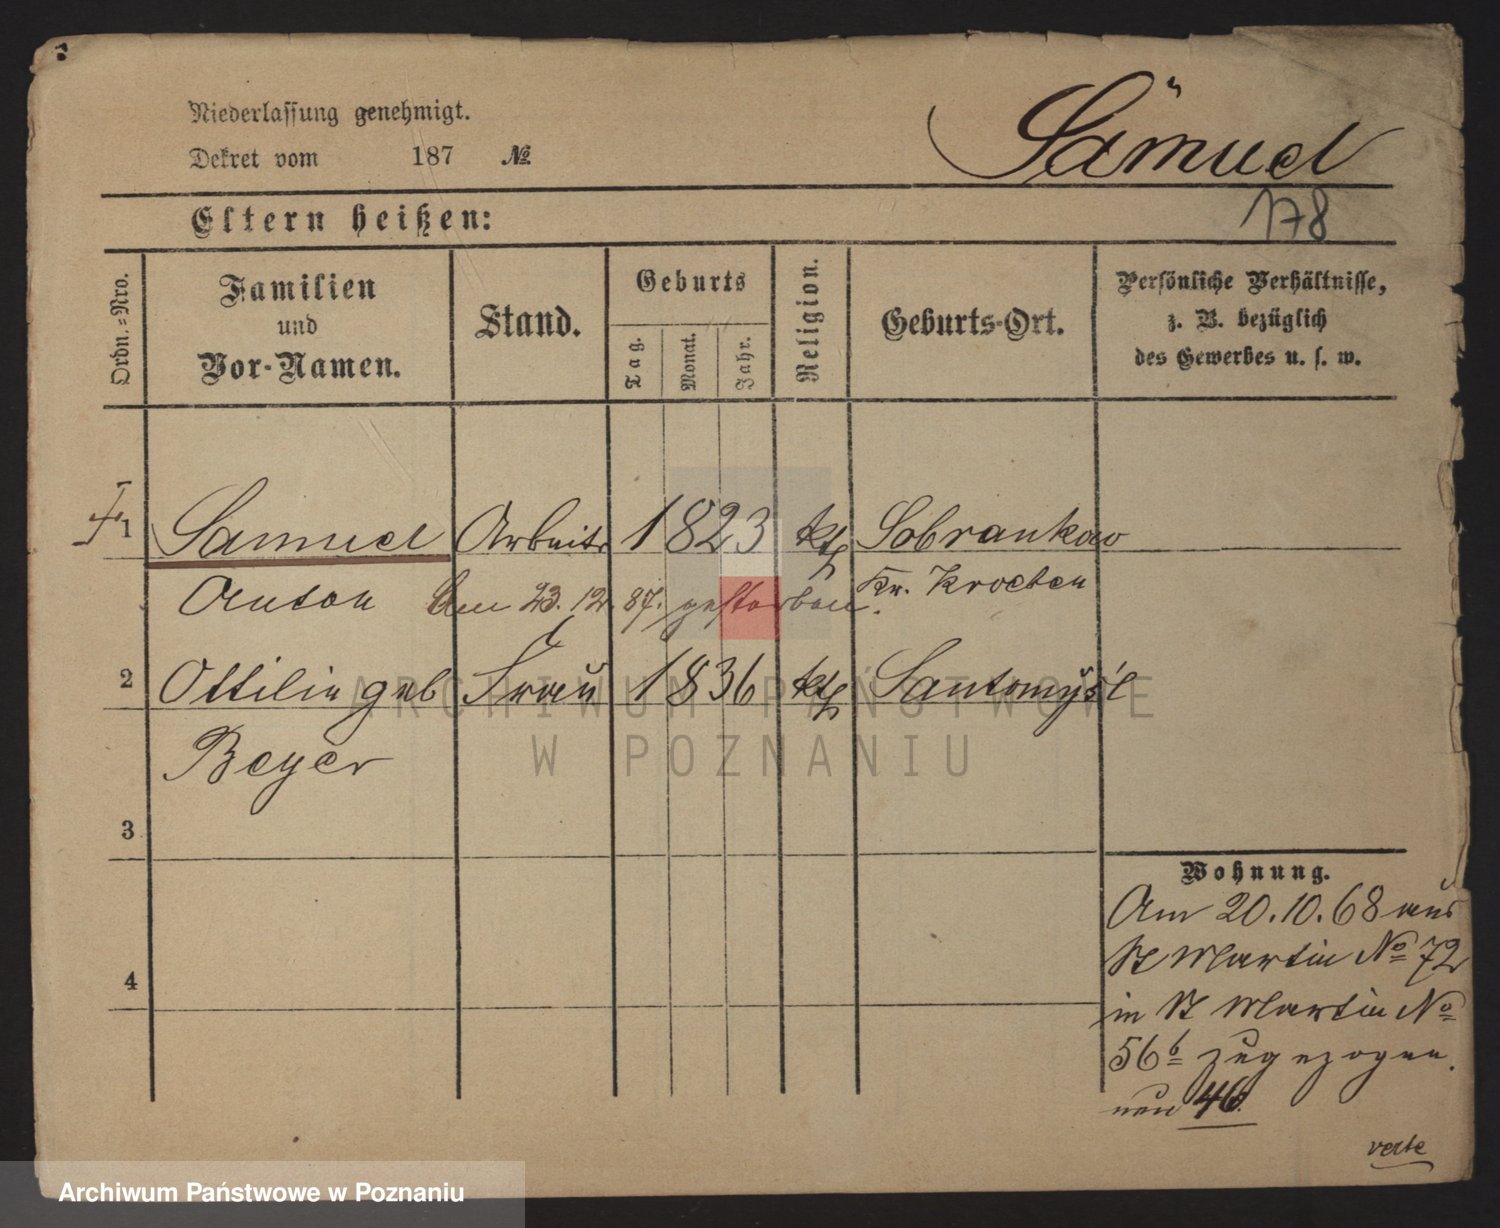 Niederlassung genehmigt.
Dekret vom 187 №
Sämuel
178
Eltern heißen:
Ordn.-Nro.
Familien und Vor-Namen.
Stand.
Geburts
Tag. Monat. Jahr.
Religion.
Geburts-Ort.
Persönliche Verhältnisse,
z. B. bezüglich
des Gewerbes u. s. w.
1 Samuel Arbeitr 1823 kth Sobrankow
Anton Am 23. 12. 87. gestorben. Kr. Kroeben
2 Ottilie geb Frau 1836 kth Santomyśl
Beyer
3
4
Wohnung.
Am 20.10.68 aus
St Martin No 72
in St Martin No
56b zugezogen.
neu 46.
verte
ARCHIWUM PAŃSTWOWE
W POZNANIU
Archiwum Państwowe w Poznaniu